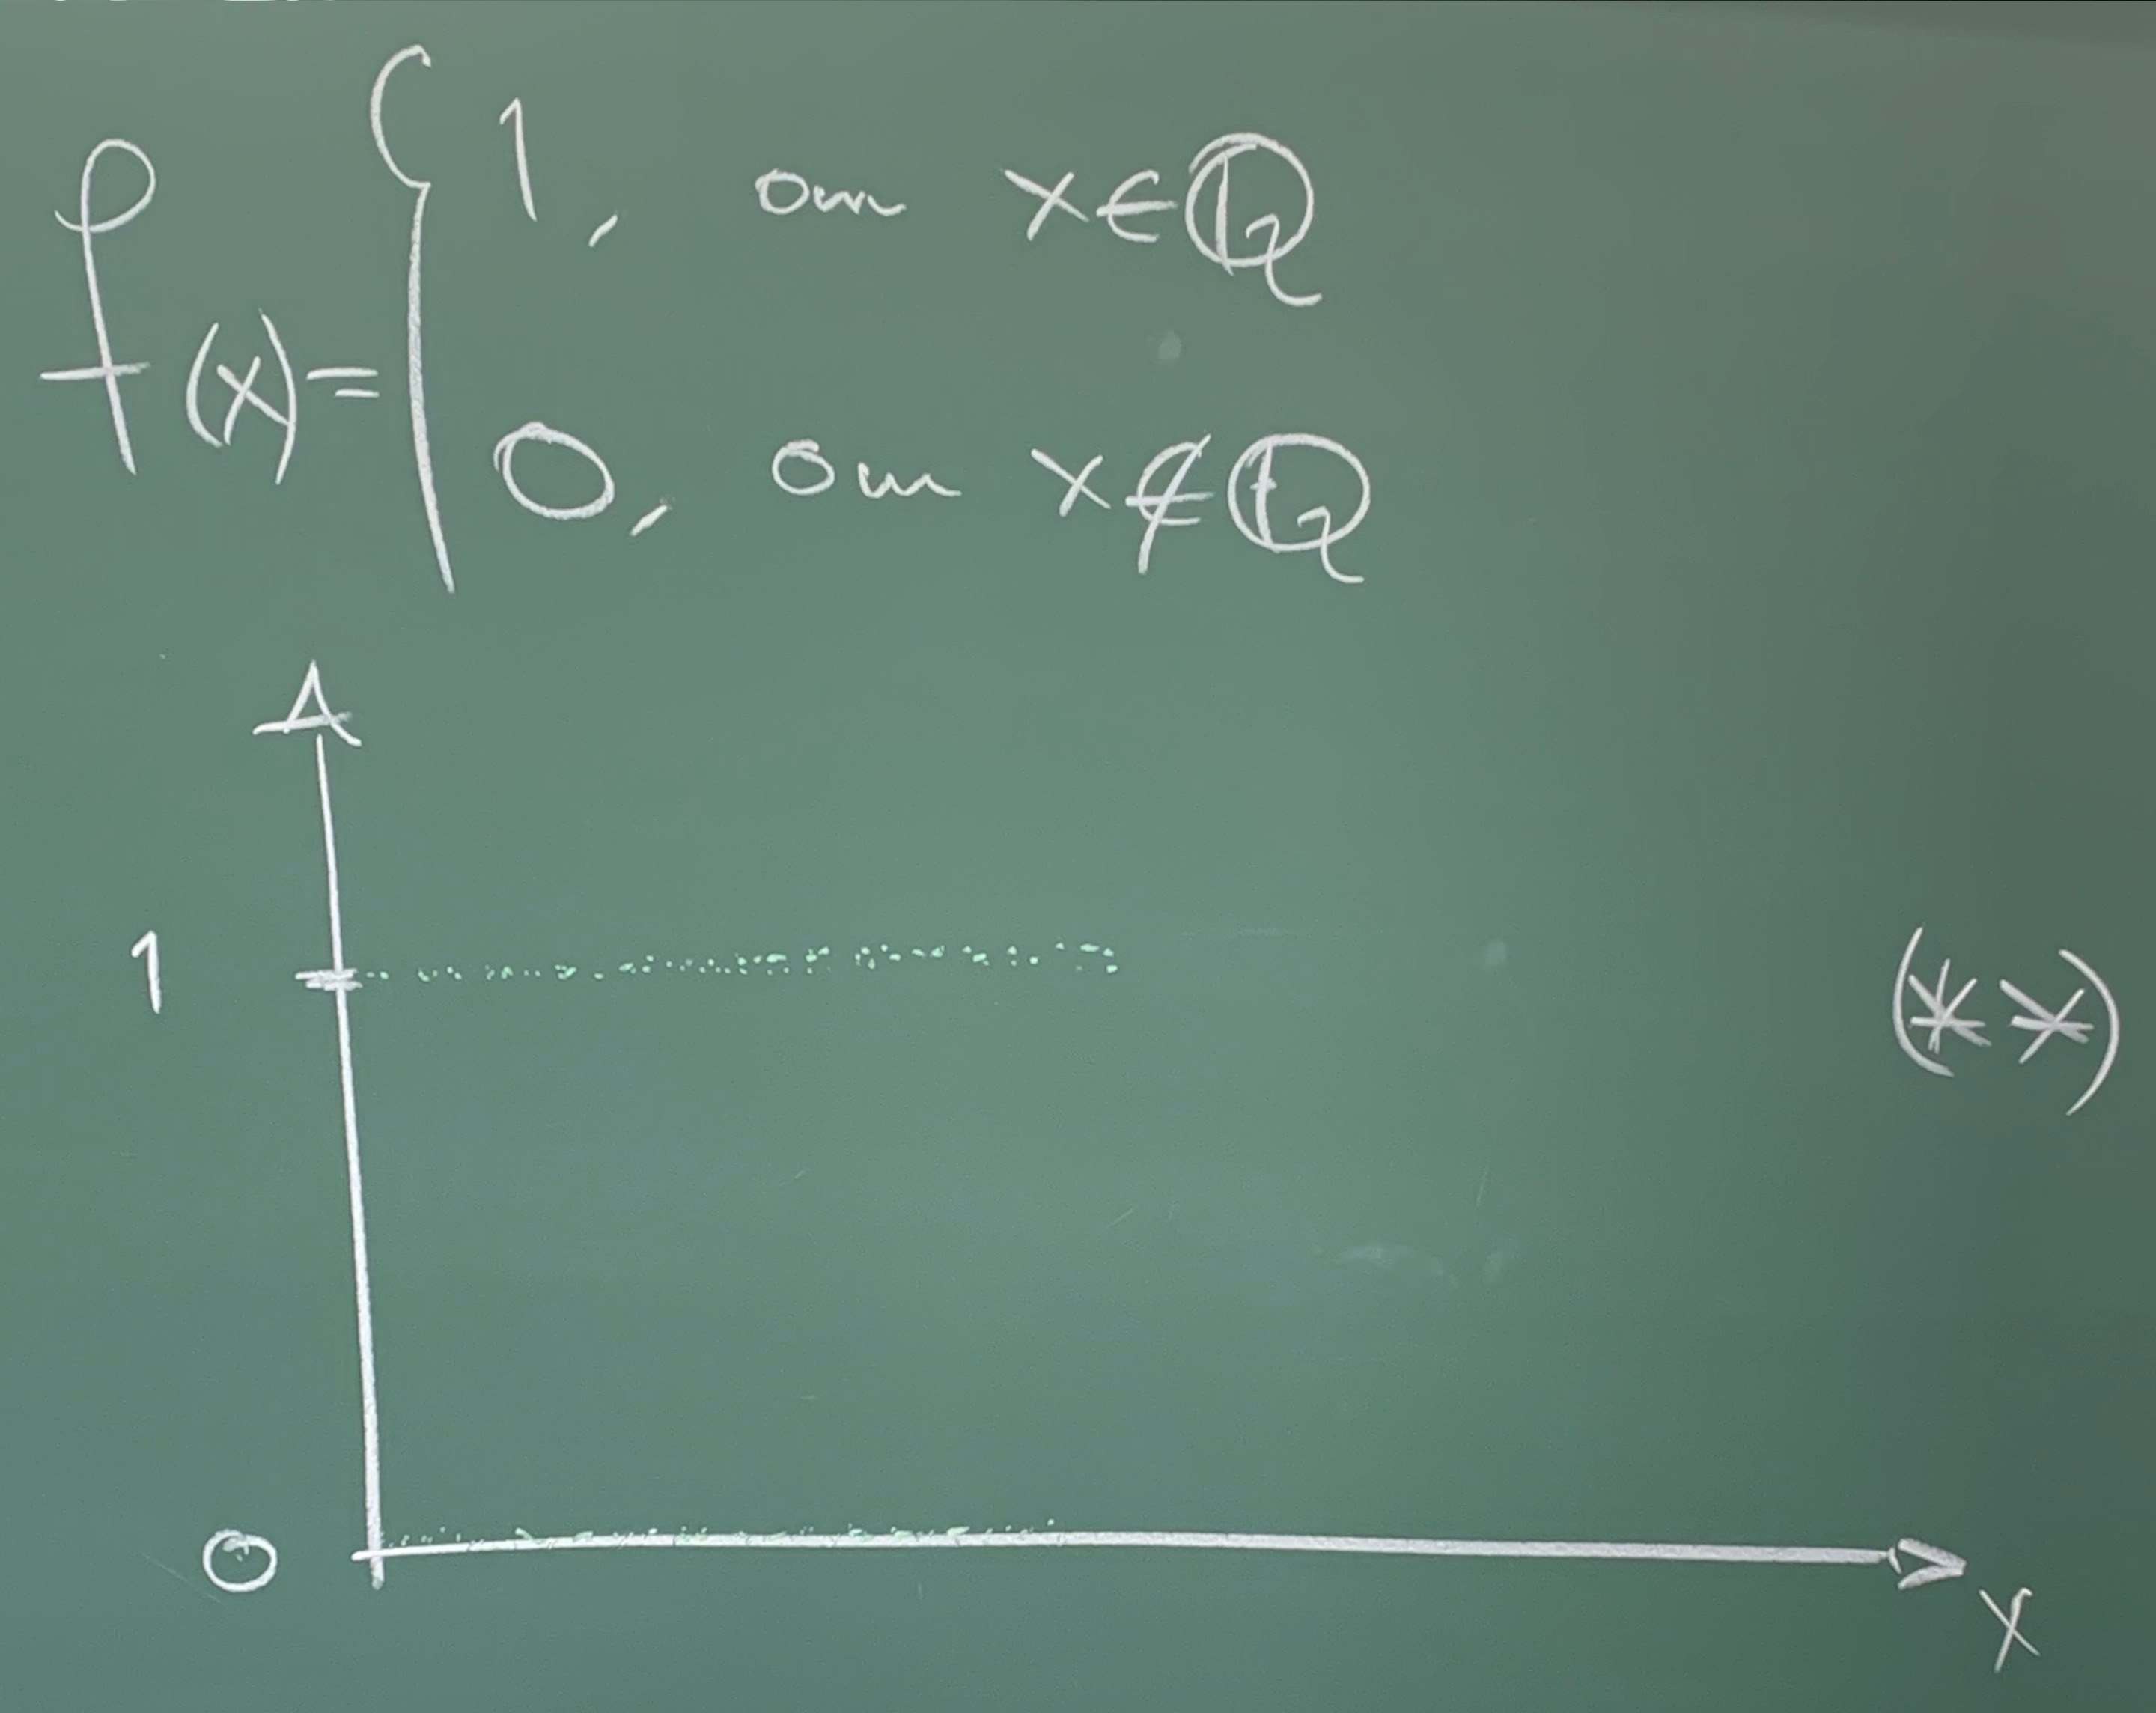 f(x)= { 1, om x∈ℚ
0, om x∉ℚ
1
(**)
0
x